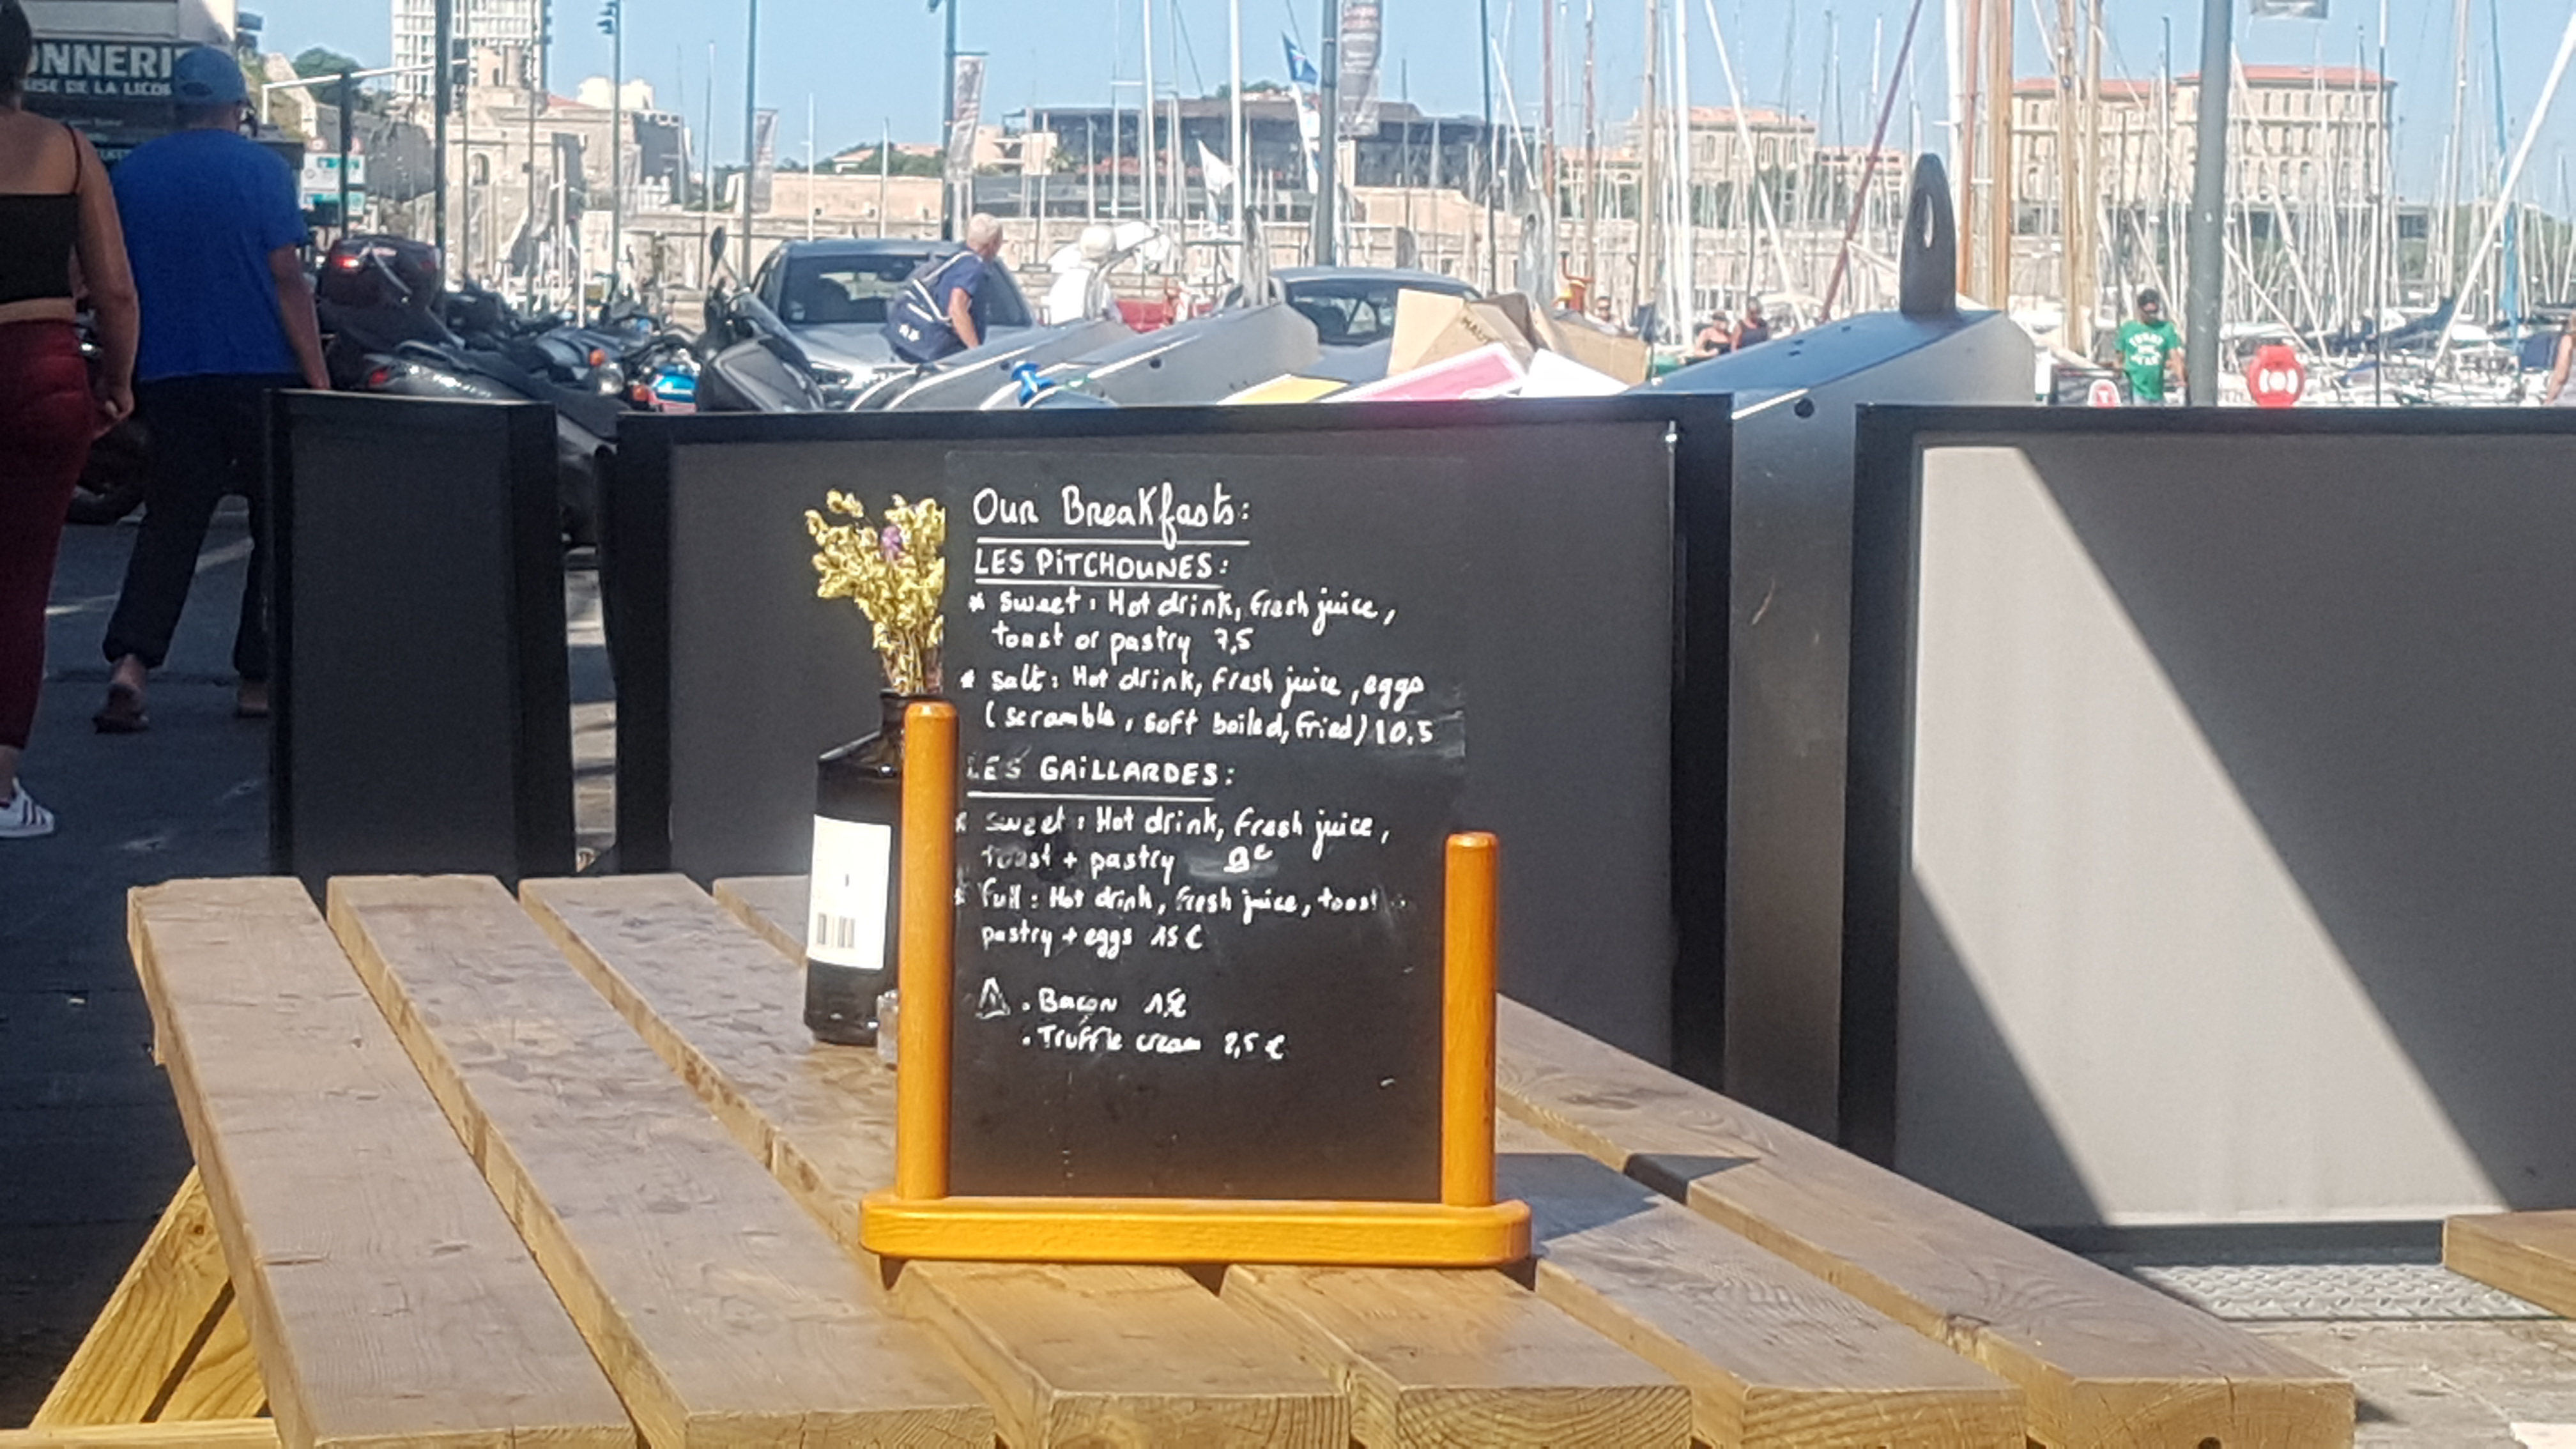 ONNERI
ISE DE LA LICOR
Our Breakfasts:
LES PiTCHOUNES:
* sweet: Hot drink, fresh juice,
toast or pastry 7,5
* salt: Hot drink, fresh juice, eggs
(scramble, soft boiled, fried) 10.5
LES GAiLLARDES:
* sweet: Hot drink, fresh juice,
toast + pastry 9€
* Full: Hot drink, fresh juice, toast
pastry + eggs 15€
. Bacon 1€
. Truffle cream 2,5 €